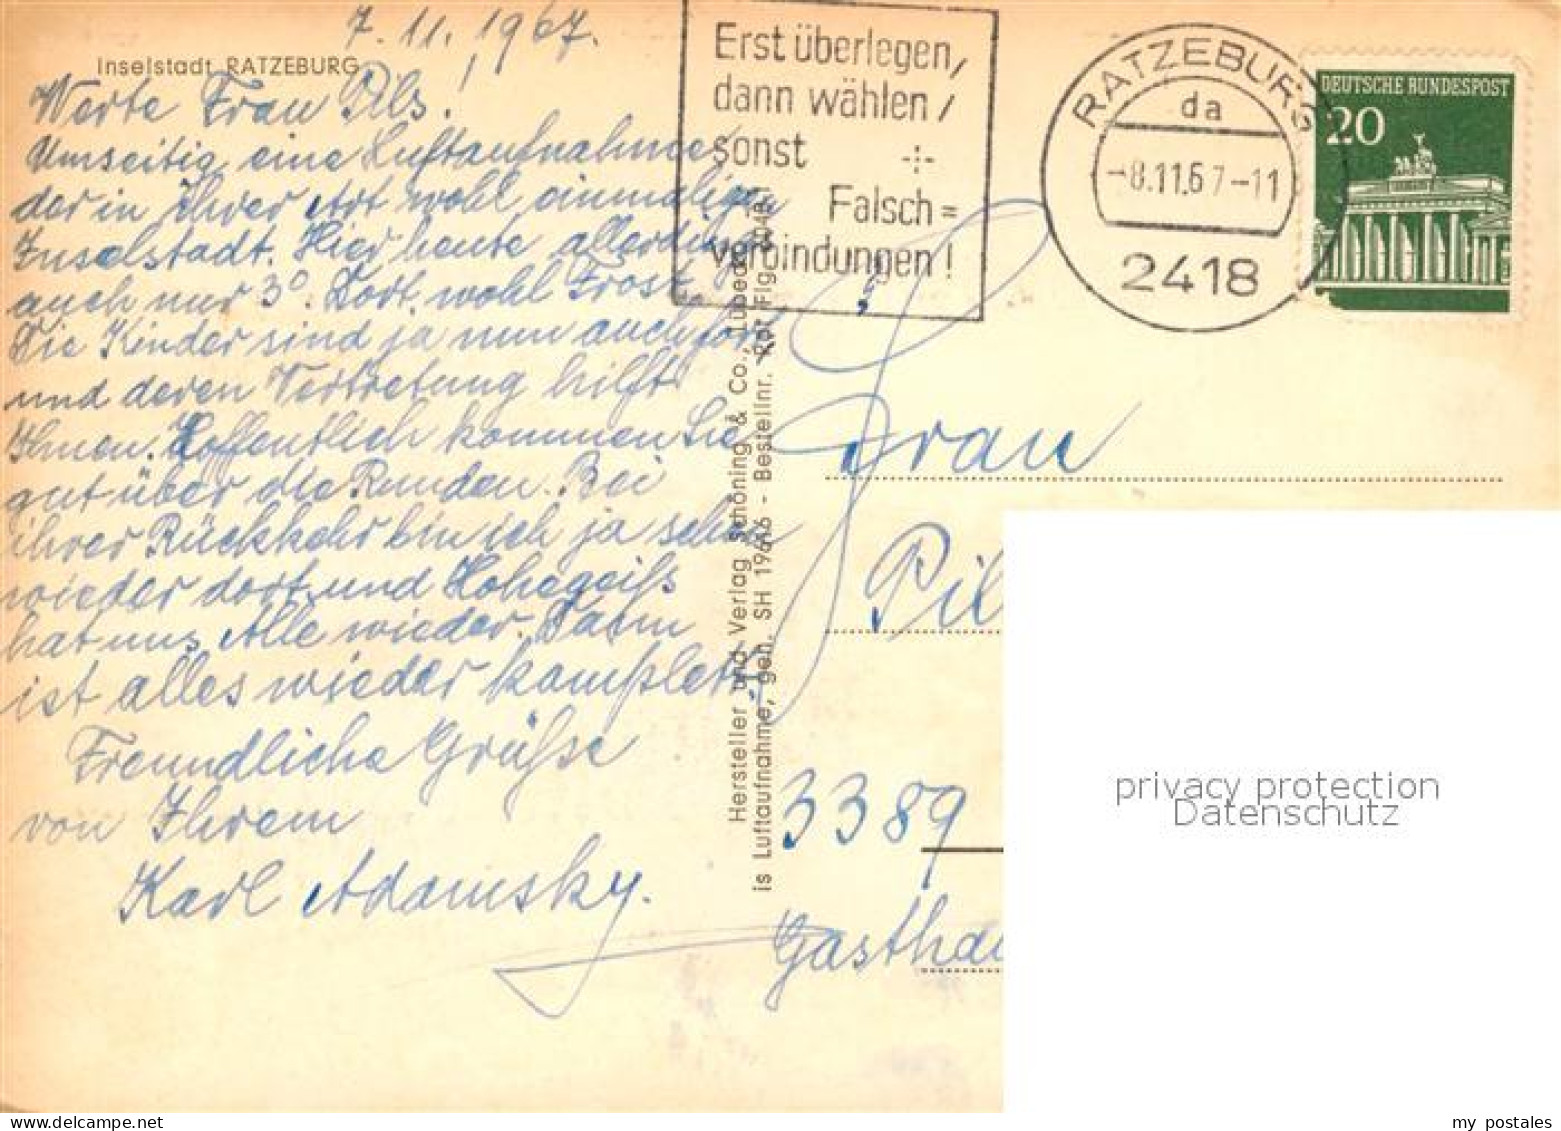 7.11.1967.
Inselstadt RATZEBURG
Werte Frau Pils!
Umseitig eine Luftaufnahme
der in Ihrer Art wohl einmaligen
Inselstadt. Hier heute allerdings
auch nur 3°. Dort wohl Frost.
Die Kinder sind ja nun auch fort
und deren Vertretung hilft
Ihnen. Hoffentlich kommen Sie
gut über die Runden. Bei
ihrer Rückkehr bin ich ja schon
wieder dort und Hohegeiß
hat uns Alle wieder. Dann
ist alles wieder komplett.
Freundliche Grüße
von Ihrem
Karl Adamsky.
Hersteller und Verlag Schöning & Co., Lübeck
is Luftaufnahme, geh. SH 196/6 - Bestellnr.
Erst überlegen,
dann wählen,
sonst
Falsch=
verbindungen!
RATZEBURG
da
-8.11.67-11
2418
DEUTSCHE BUNDESPOST
20
Frau
Pil
3389
Gasthau
privacy protection
Datenschutz
my postales